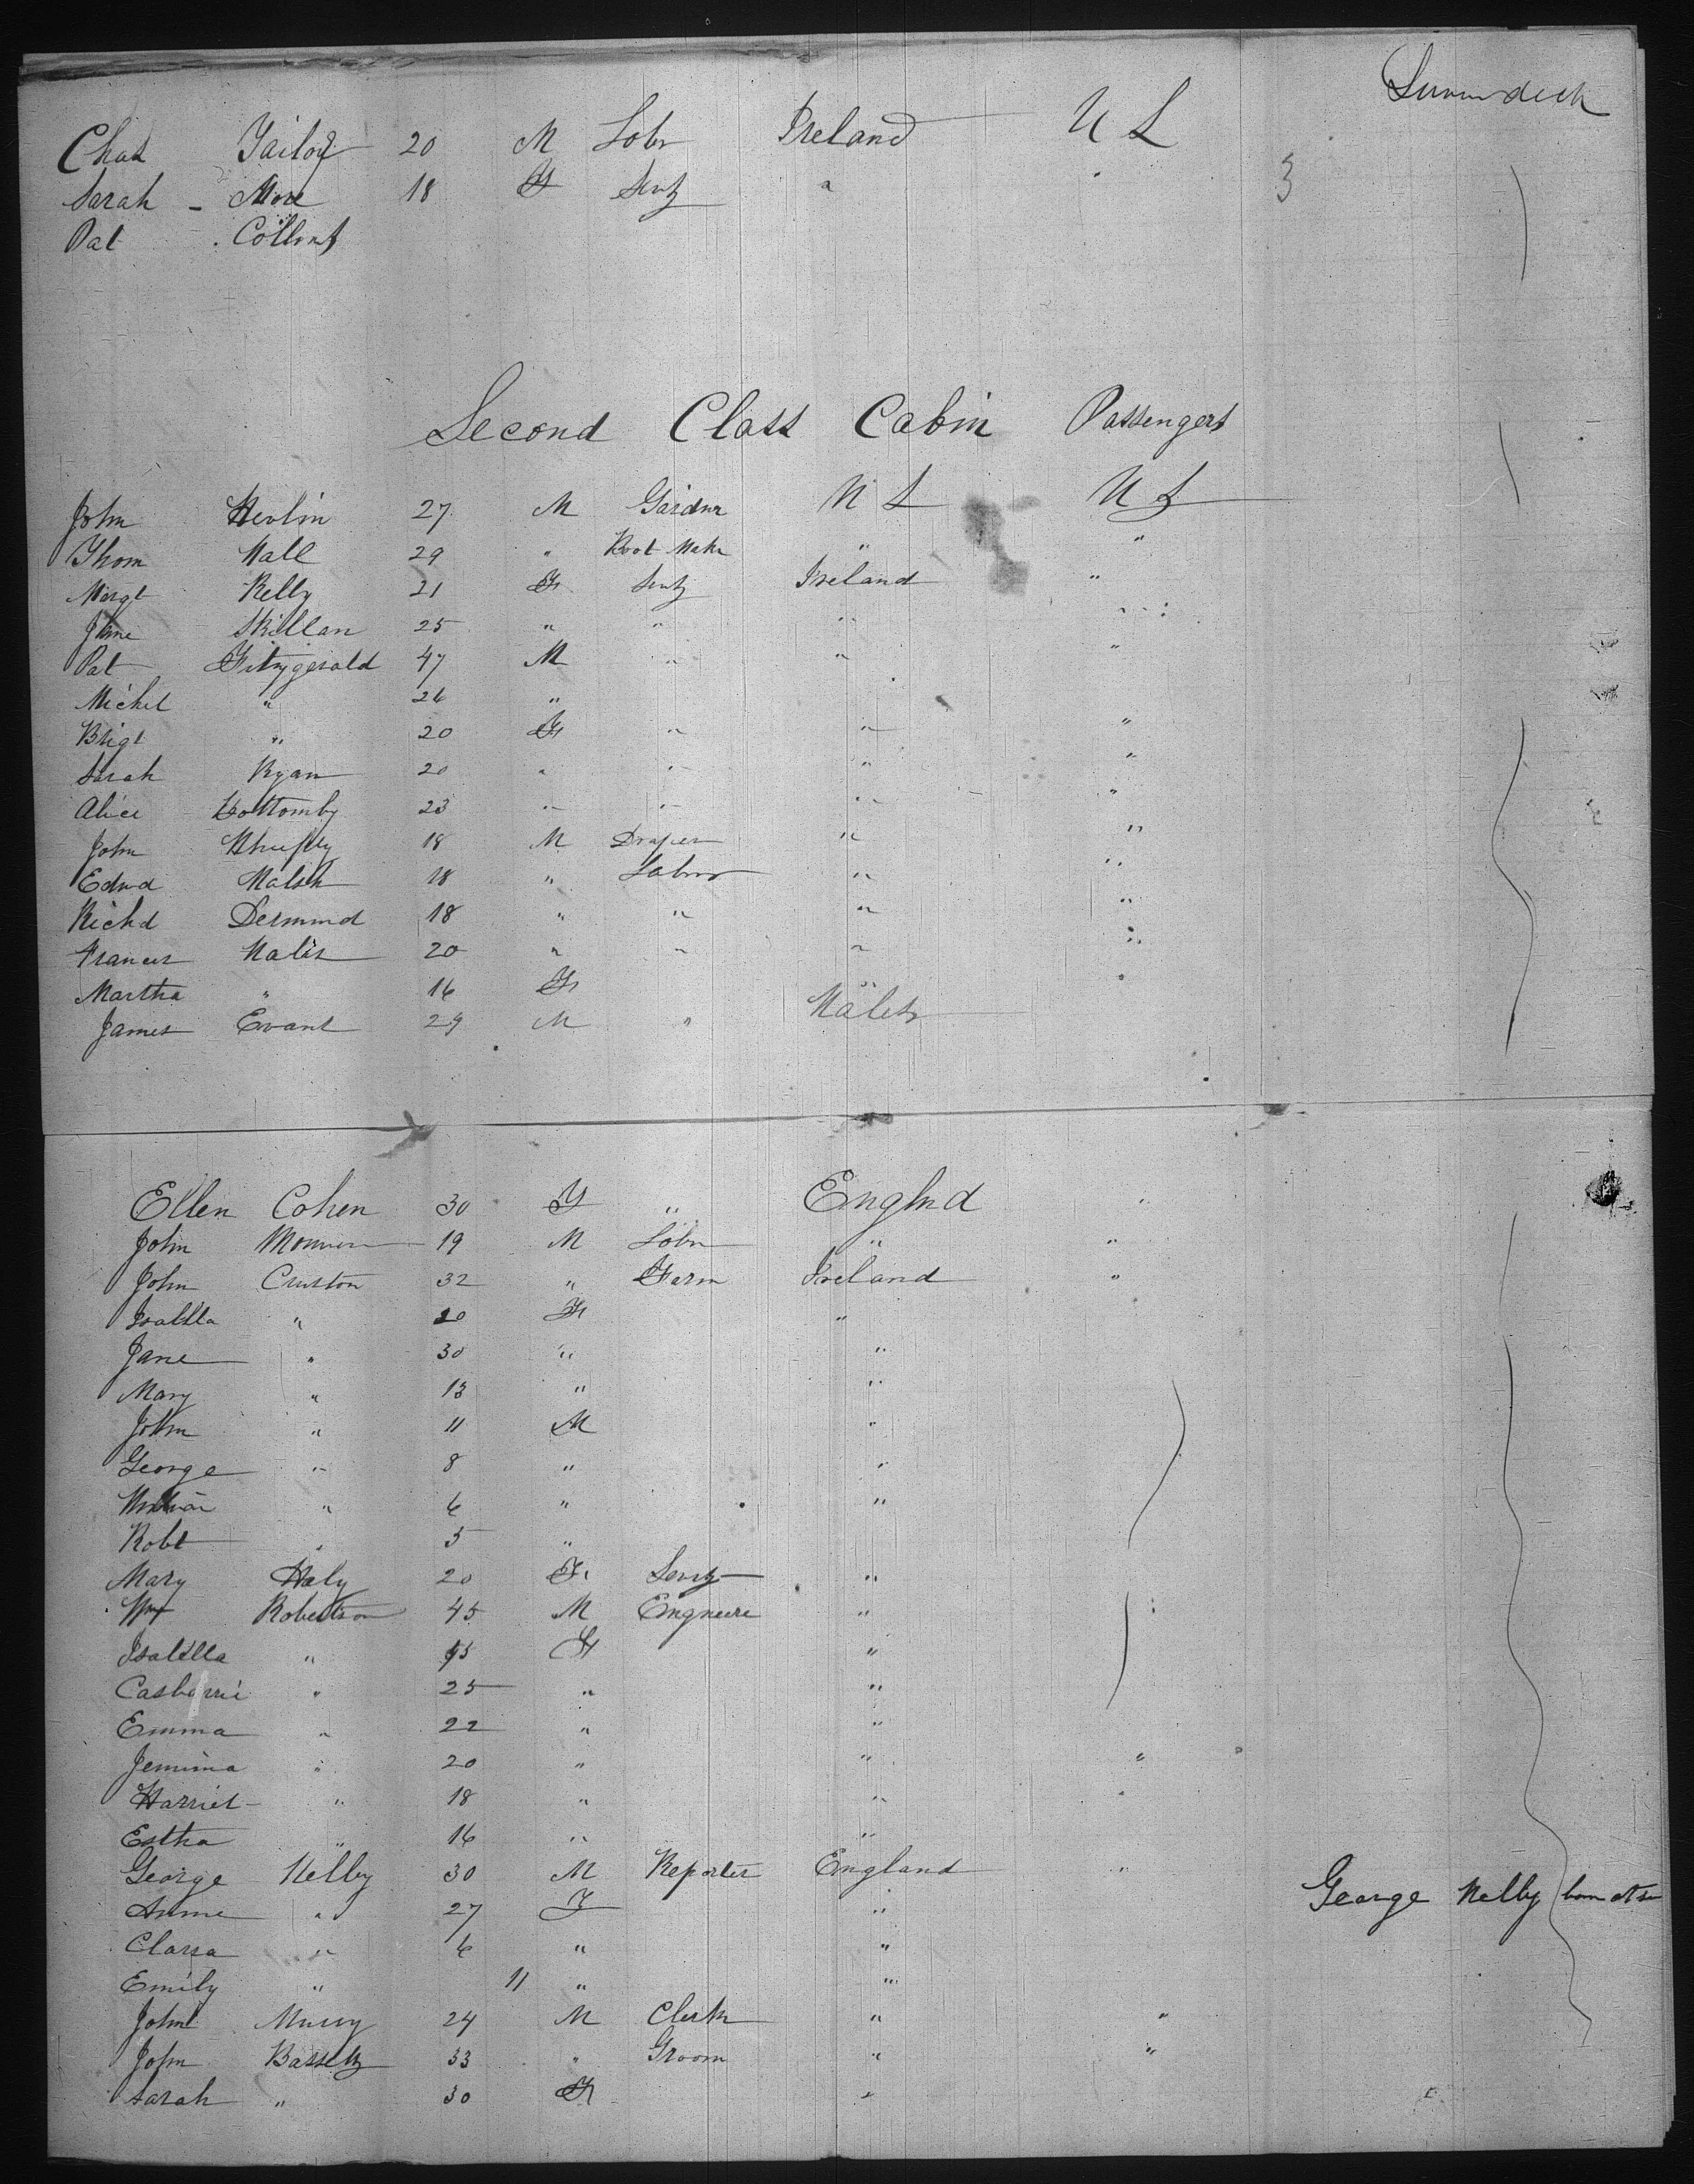 Chas Tailor 20 M Lobr Ireland U S
Sarah - More 18 F Servt " " 3
Pat . Collins
Second Class Cabin Passengers
John 27 M Gardnr U S U S
Thom Hall 29 " Boot Makr " "
Margt Kelly 21 F Servt Ireland "
Jane Skillan 25 " " " "
Pat Fitzygerald 47 M " " "
Michel " 26 "
Brigt " 20 F " " "
Sarah Ryan 20 " " " "
Alice Bottomby 23 " " " "
John 18 M Draper " "
Edwd Walsh 18 " Labour " "
Richd Dermund 18 " " " "
Frances Walis 20 " " " "
Martha " 16 F " "
James Evans 29 M " Wales
Ellen Cohen 30 F " Englnd "
John 19 M Lobr " "
John Cruston 32 " Farm Ireland "
Isabella " 20 F "
Jane " 30 " "
Mary " 13 " "
John " 11 M "
George " 8 " "
" 6 " "
Robt " 5 "
Mary Haly 20 F Servt "
Wm Robertson 45 M Engneere "
Isabella " 45 F "
" 25 " "
Emma " 22 " "
Jemima " 20 " " "
Harriet " 18 " " "
Estha " 16 " "
George Kelly 30 M Reporter England " George Kelly born at sea
Anne " 27 F "
Clara " 6 " "
Emily " 11 " "
John 24 M Clerk " "
John Bassett 33 " Groom " "
Sarah " 30 F "